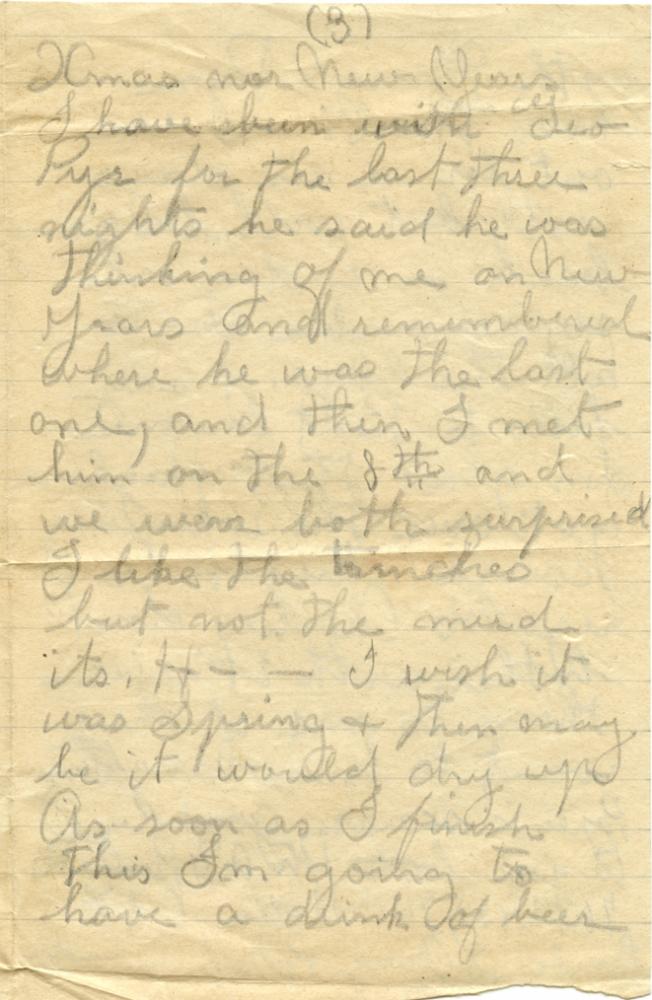 (3)
Xmas nor New Years
I have been with Geo
Pyr for the last three
nights he said he was
thinking of me on New
Years and remembered
where he was the last
one, and then I met
him on the 8th and
we were both surprised
I like the trenches
but not the mud
its. H - - I wish it
was Spring & then may
be it would dry up
As soon as I finish
this Im going to
have a drink of beer